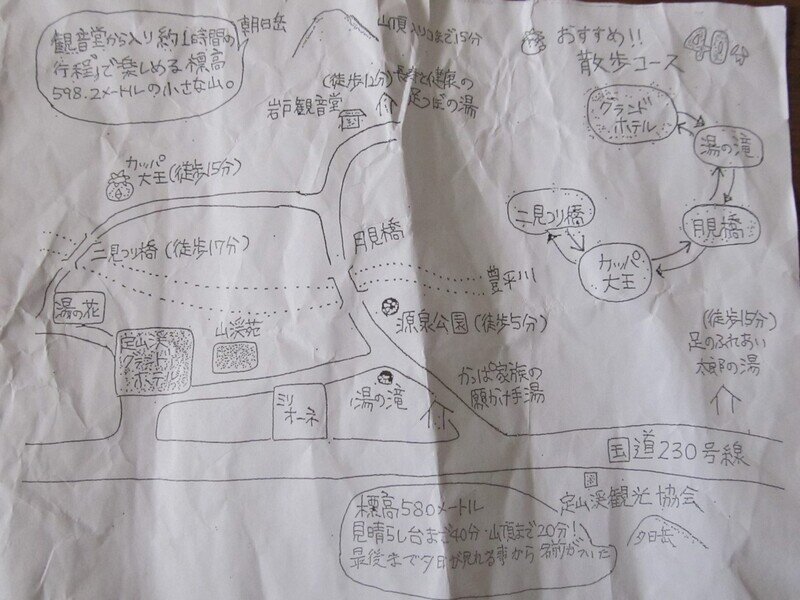 観音堂から入り約1時間の
行程で楽しめる標高
598.2メートルの小さな山。
朝日岳
山頂入り口まで15分
おすすめ!!
散歩コース
40分
グランド
ホテル
湯の滝
月見橋
カッパ
大王
二見つり橋
岩戸観音堂
(徒歩12分)
長寿と健康の
足つぼの湯
カッパ
大王(徒歩15分)
二見つり橋(徒歩17分)
月見橋
豊平川
湯の花
定山渓
グランド
ホテル
山渓苑
源泉公園(徒歩5分)
ミリ
オーネ
湯の滝
かっぱ家族の
願かけ手湯
(徒歩15分)
足のふれあい
太郎の湯
国道230号線
定山渓観光協会
夕日岳
標高580メートル
見晴らし台まで40分・山頂まで20分!
最後まで夕日が見れる事から名前がついた